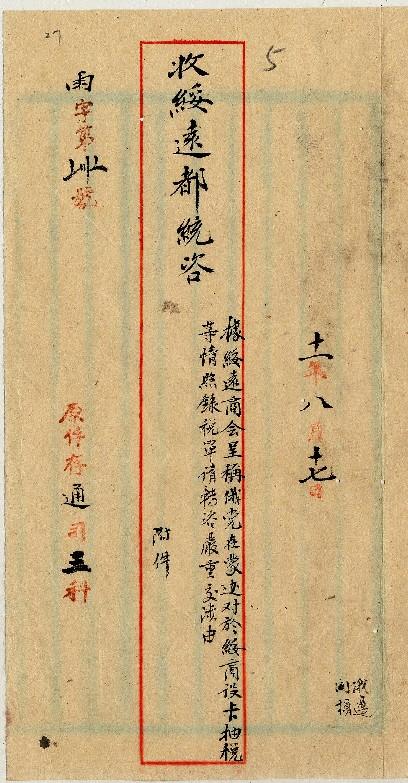 27
5
十一年八月十七日
俄邊
收綏遠都統咨
據綏遠商会呈稱俄党在蒙边对於綏商设卡抽税
等情照錄税单请轉咨嚴重交涉由
附件
雨字第卅號
原件存通司三科